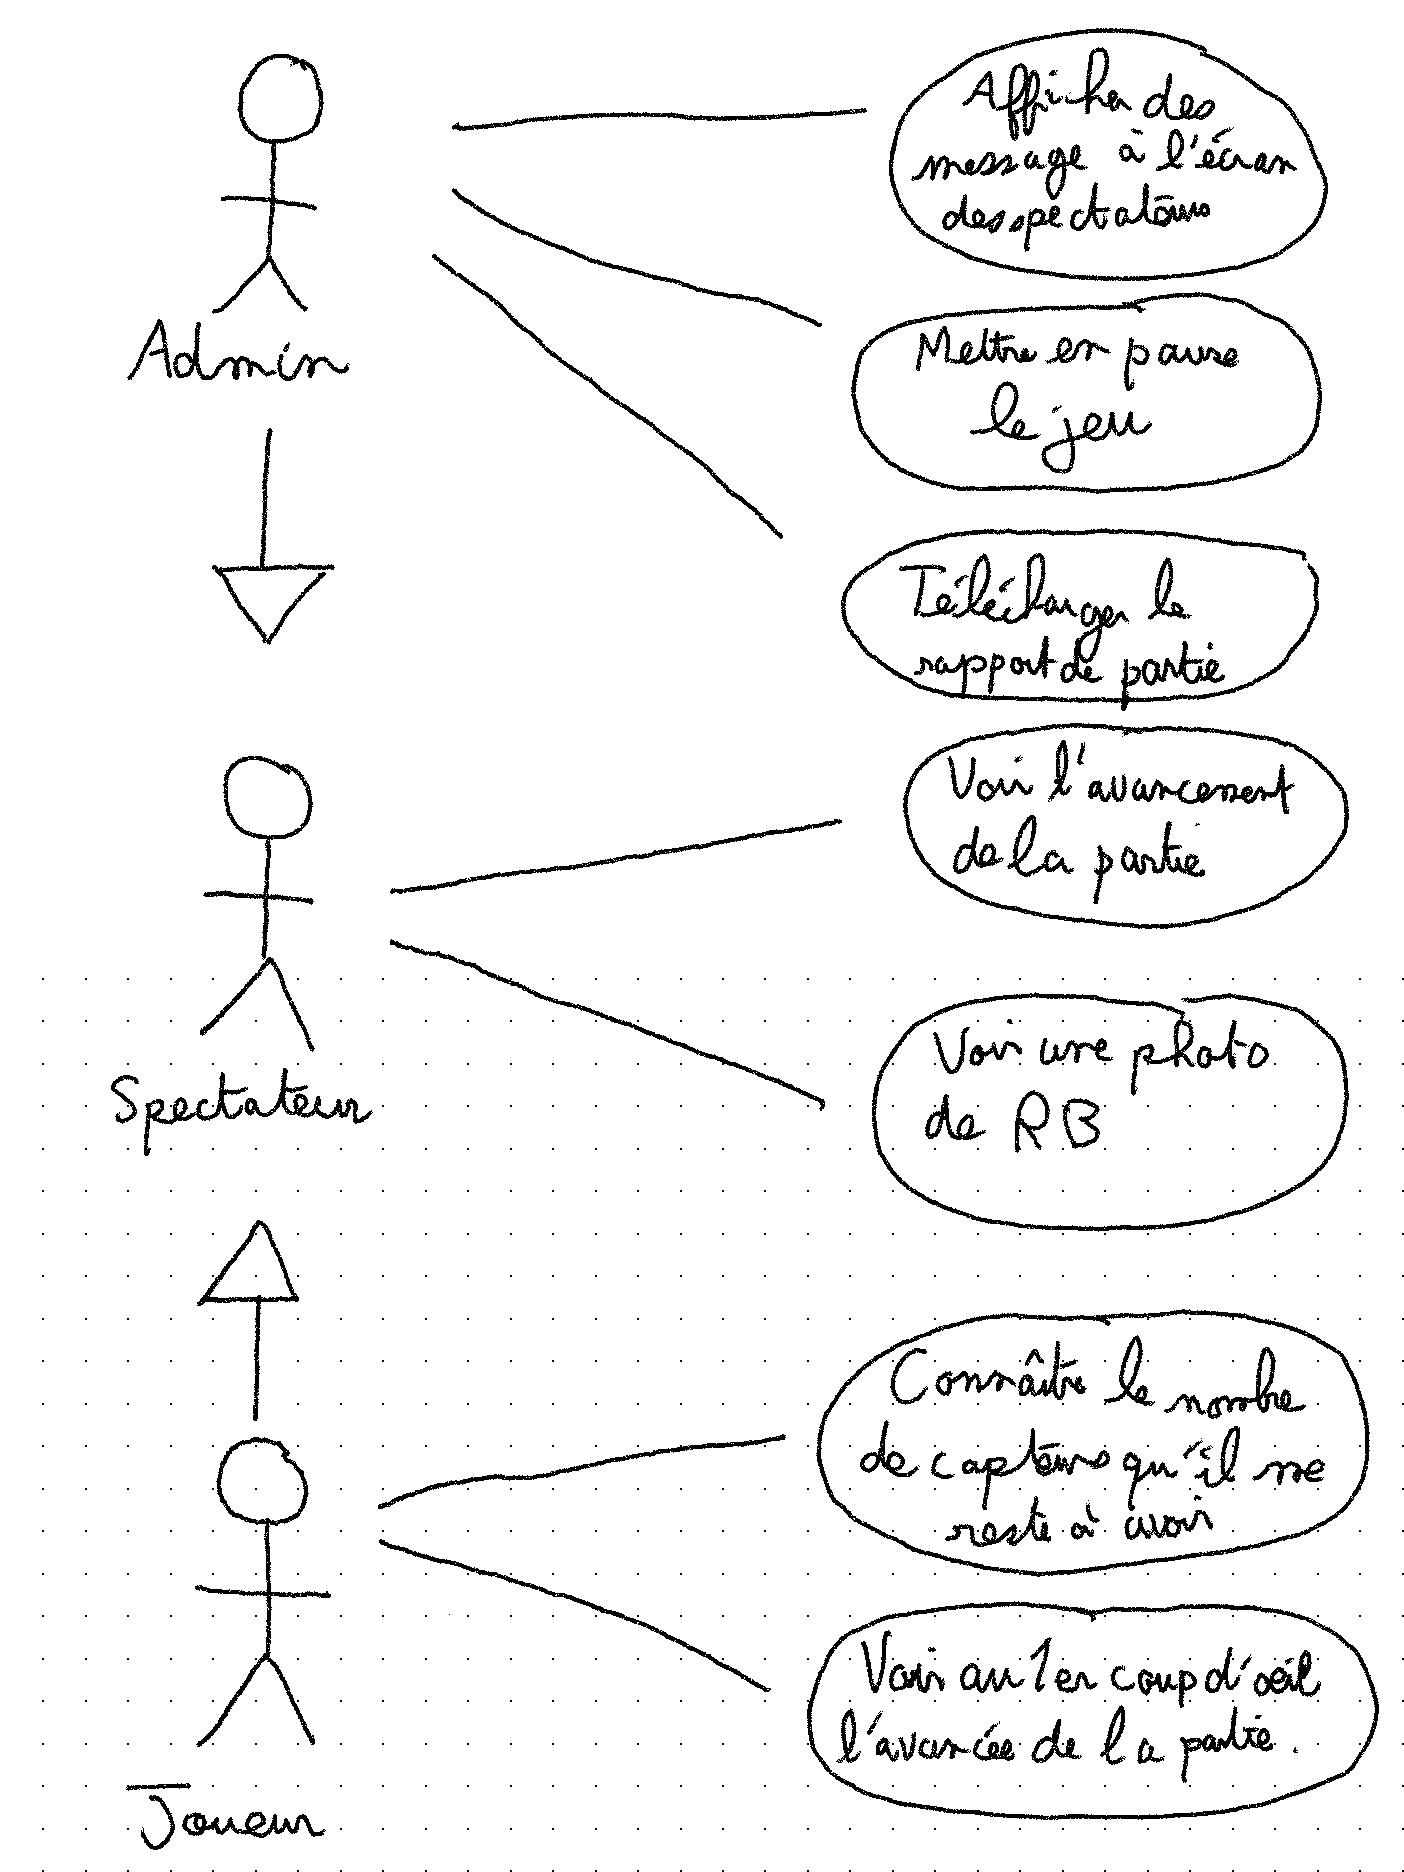 Afficher des
message à l'écran
des spectateurs
Admin
Mettre en pause
le jeu
Télécharger le
rapport de partie
Voir l'avancement
de la partie
Spectateur
Voir une photo
de RB
Connaître le nombre
de capteurs qu'il me
reste à avoir
Voir au 1er coup d'œil
l'avancée de la partie.
Joueur